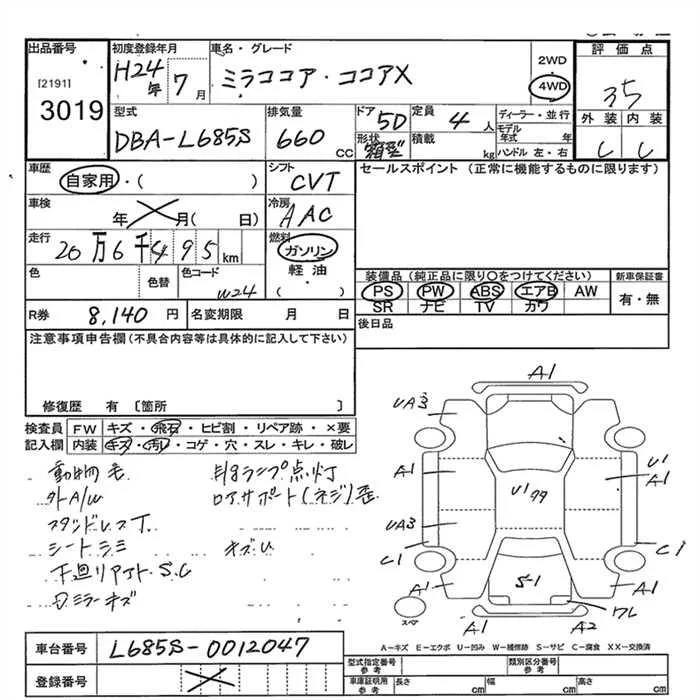 出品番号
[2191]
3019
初度登録年月
H24年 7月
車名・グレード
ミラココア・ココアX
2WD
4WD
評価点
35
外装 内装
型式
DBA-L685S
排気量
660 CC
ドア
5D
形状
箱型
定員
4人
積載
kg
ディーラー・並行
モデル年式 年
ハンドル 左・右
車歴
自家用・( )
シフト
CVT
セールスポイント (正常に機能するものに限ります)
車検
年 月( 日)
冷房
AAC
走行
20万6千495km
燃料
ガソリン
軽油
( )
色
色替
色コード
W24
装備品(純正品に限り〇をつけてください)
PS PW ABS エアB AW
SR ナビ TV カワ
新車保証書
有・無
R券
8,140円
名変期限 月 日
後日品
注意事項申告欄(不具合内容等は具体的に記入して下さい)
修復歴 有 〔箇所 〕
検査員記入欄
FW キズ・飛石・ヒビ割・リペア跡・×要
内装 キズ・汚れ・コゲ・穴・スレ・キレ・破レ
動物毛
外A/W
スタンドレス丁
シートシミ キズU
下廻リアイト.S.C
ミラーキズ
ランプ点灯
ロアサポート(ネジ)歪
A1
UA3
A1
UA3
C1
A1
U1
99
U1
A1
C1
A1
S-1
ワレ
A1
A2
スペア
A-キズ E-エクボ U-凹み W-補修跡 S-サビ C-腐食 XX-交換済
車台番号
L685S-0012047
登録番号
型式指定番号
参考
類別区分番号
参考
車庫証明用
参考
長さ cm
幅 cm
高さ cm